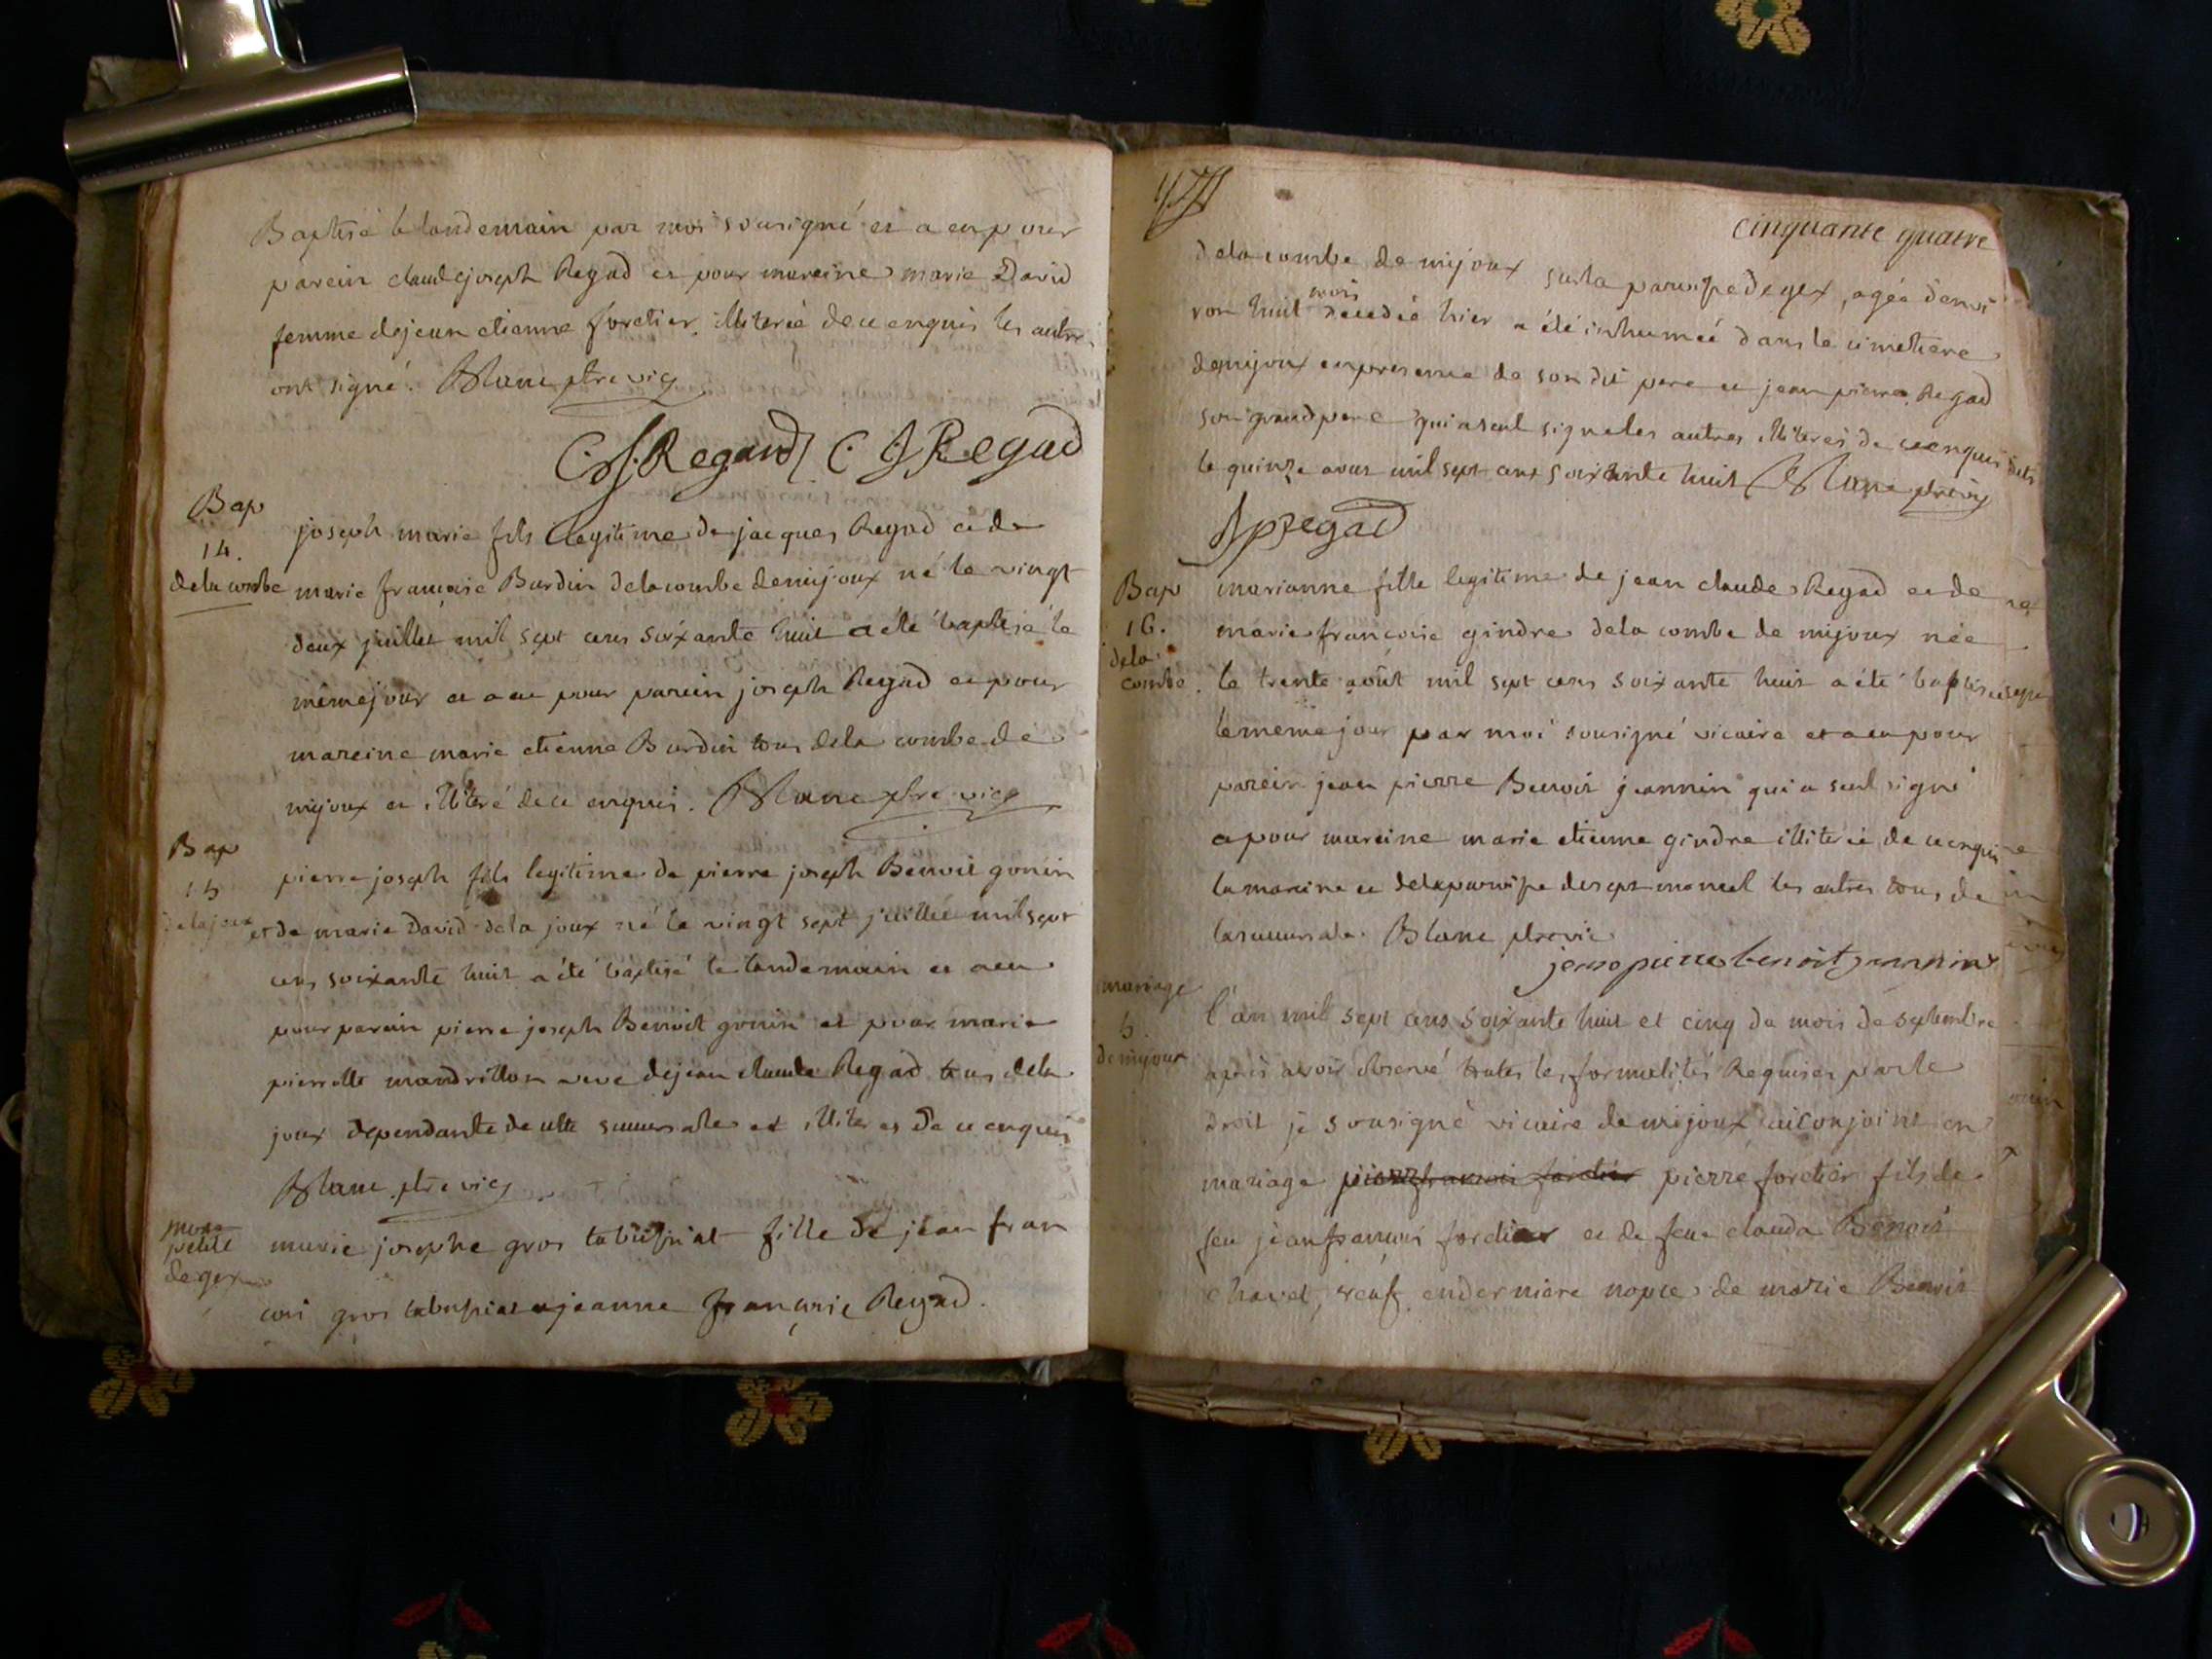 Baptisé le landemain par moi sousigné et a eu pour
parein claude joseph Regad et pour mareine marie David
femme dejean etienne foretier illiterée de ce enquis les autres
ont signé. Blanc ptre vic
C. J. Regaud C J Regad
Bap
14.
dela combe
joseph marie fils legitime de jacques Regad et de
marie françoise Burdin dela combe demijoux né le vingt
deux juillet mil sept cens soixante huit a été baptisé le
même jour et a eu pour parein joseph Regad et pour
mareine marie etienne Burdin tous dela combe de
mijoux et illiteré de ce enquis. Blanc ptre vic
Bap
15
dela joux
pierre joseph fils legitime de pierre joseph Benoit gonin
et de marie David dela joux né le vingt sept juillet mil sept
cens soixante huit a été baptisé le landemain et a eu
pour parein pierre joseph Benoit gonin et pour marie
pierrotte mandrillon veve dejean claude Regad tous dela
joux dependante de cette succursale et illiteres de ce enquis
Blanc ptre vic
mort
petite
de gex
marie josephe gros tabusiat fille de jean fran
cois gros tabusiat et jeanne françoise Regad.
cinquante quatre
dela combe de mijoux sur la paroisse de gex, agée denvi
ron huit mois decedée hier a été inhumée dans le cimetiere
demijoux en presence de son dit pere et jean pierre Regad
son grand pere qui a seul signé les autres illiteres de ce enquis
le quinze aout mil sept cens soixante huit Blanc ptre vic
J p Regad
Bap
16.
dela
combe
marianne fille legitime de jean claude Regad et de
marie françoise gindre dela combe de mijoux née
le trente août mil sept cens soixante huit a été baptisée
le meme jour par moi sousigné vicaire et a eu pour
parein jean pierre Benoit jeannin qui a seul signé
et pour mareine marie etienne gindre illiterée de ce enquis
la mareine et dela paroisse de sept moncel les autres tous de
la succursale. Blanc ptre vic
jean pierre benoit jeannin
mariage
5.
de mijoux
l'an mil sept cens soixante huit et cinq du mois de septembre
après avoir observé toutes les formalités Requises par le
droit je sousigné vicaire de mijoux ai conjoint en
mariage pierre françois foretier pierre foretier fils de
feu jean françois foretier et de feue clauda Benoit
chavet, veuf en derniere nopces de marie Benoit